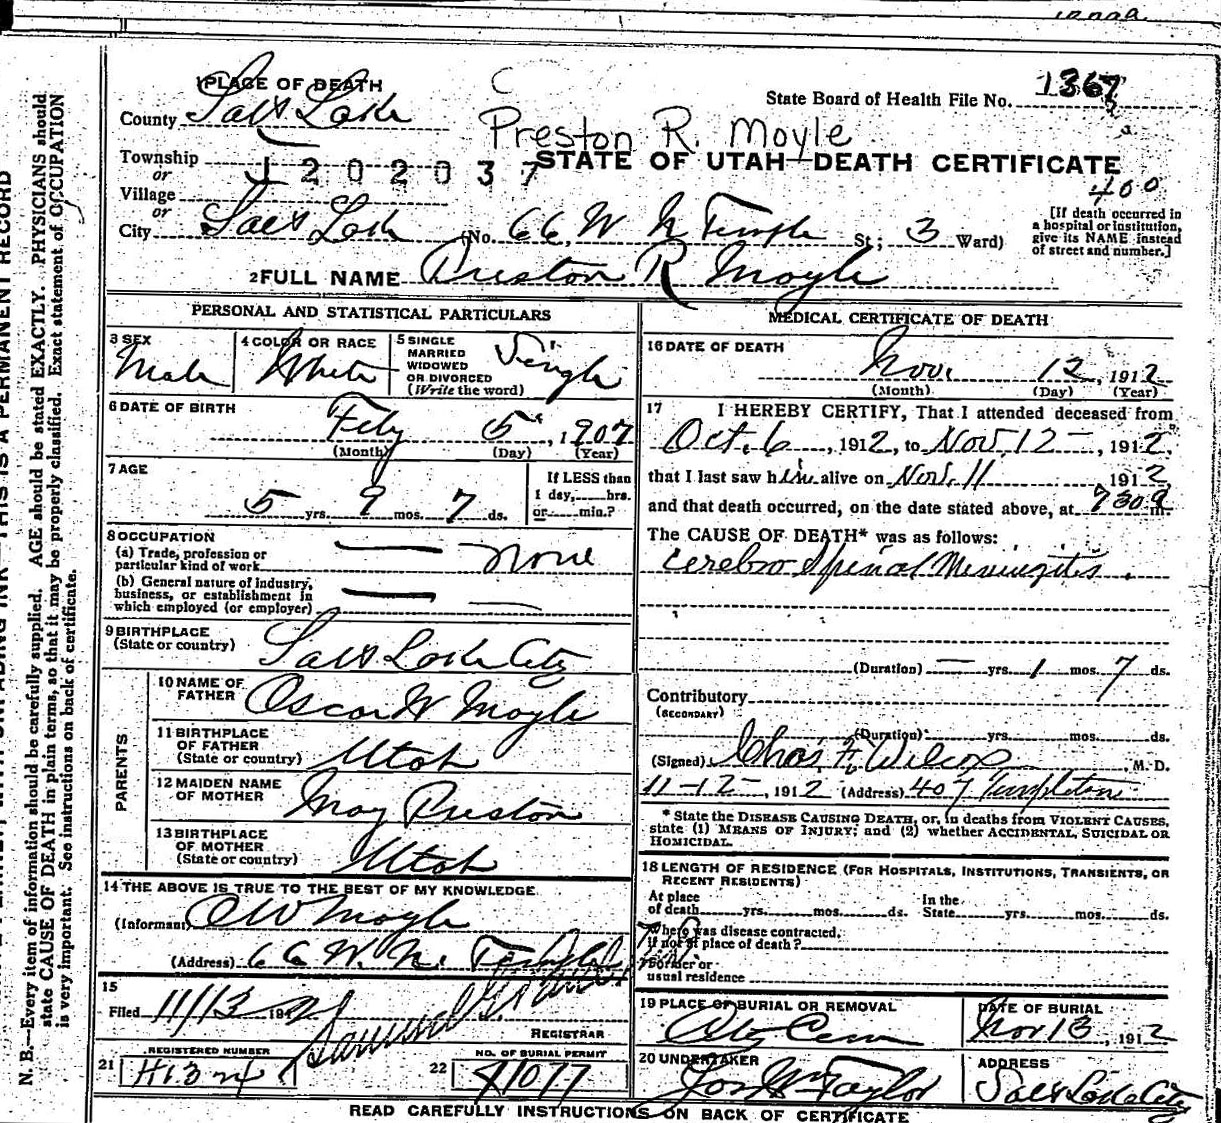 1 PLACE OF DEATH
County Salt Lake
State Board of Health File No. 1367
Preston R. Moyle
Township
or
1202037
STATE OF UTAH—DEATH CERTIFICATE
400
Village
or
City Salt Lake (No. 66, W N Temple St; 3 Ward)
[If death occurred in
a hospital or institution,
give its NAME instead
of street and number.]
2 FULL NAME Preston R Moyle
PERSONAL AND STATISTICAL PARTICULARS
3 SEX
Male
4 COLOR OR RACE
White
5 SINGLE
MARRIED
WIDOWED
OR DIVORCED
(Write the word)
Single
6 DATE OF BIRTH
Feby 5, 1907
(Month) (Day) (Year)
7 AGE
5 yrs. 9 mos. 7 ds.
If LESS than
1 day, hrs.
or min.?
8 OCCUPATION
(a) Trade, profession or
particular kind of work none
(b) General nature of industry,
business, or establishment in
which employed (or employer)
9 BIRTHPLACE
(State or country) Salt Lake City
PARENTS
10 NAME OF
FATHER Oscar W Moyle
11 BIRTHPLACE
OF FATHER
(State or country) Utah
12 MAIDEN NAME
OF MOTHER May Preston
13 BIRTHPLACE
OF MOTHER
(State or country) Utah
14 THE ABOVE IS TRUE TO THE BEST OF MY KNOWLEDGE
(Informant) O W Moyle
(Address) 66 W. N. Temple
15
Filed 11/13 191
REGISTRAR
REGISTERED NUMBER
21
NO. OF BURIAL PERMIT
22
MEDICAL CERTIFICATE OF DEATH
16 DATE OF DEATH
Nov. 12, 1912
(Month) (Day) (Year)
17 I HEREBY CERTIFY, That I attended deceased from
Oct. 6, 1912, to Nov. 12, 1912,
that I last saw him alive on Nov. 11, 1912,
and that death occurred, on the date stated above, at 730 a m.
The CAUSE OF DEATH* was as follows:
Cerebro Spinal Meningitis.
(Duration) — yrs. 1 mos. 7 ds.
Contributory
(SECONDARY)
(Duration) yrs. mos. ds.
(Signed) Chas. F. Wilcox, M. D.
11-12-, 1912 (Address) 407 Templeton
* State the DISEASE CAUSING DEATH, or, in deaths from VIOLENT CAUSES,
state (1) MEANS OF INJURY; and (2) whether ACCIDENTAL, SUICIDAL OR
HOMICIDAL.
18 LENGTH OF RESIDENCE (FOR HOSPITALS, INSTITUTIONS, TRANSIENTS, OR
RECENT RESIDENTS)
At place
of death yrs. mos. ds.
In the
State yrs. mos. ds.
Where was disease contracted,
if not at place of death?
Former or
usual residence
19 PLACE OF BURIAL OR REMOVAL
City Cem
DATE OF BURIAL
Nov 13, 1912
20 UNDERTAKER
Jos Wm Taylor
ADDRESS
Salt Lake City
READ CAREFULLY INSTRUCTIONS ON BACK OF CERTIFICATE
THIS IS A PERMANENT RECORD
N. B.—Every item of information should be carefully supplied. AGE should be stated EXACTLY. PHYSICIANS should
state CAUSE OF DEATH in plain terms, so that it may be properly classified. Exact statement of OCCUPATION
is very important. See instructions on back of certificate.